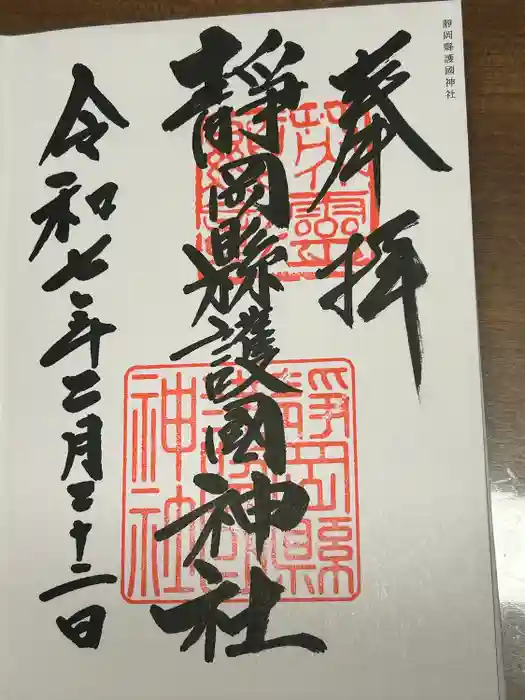 靜岡縣護國神社
奉拝
靜岡縣護國神社
令和七年二月二十二日
靜岡縣
護國
神社